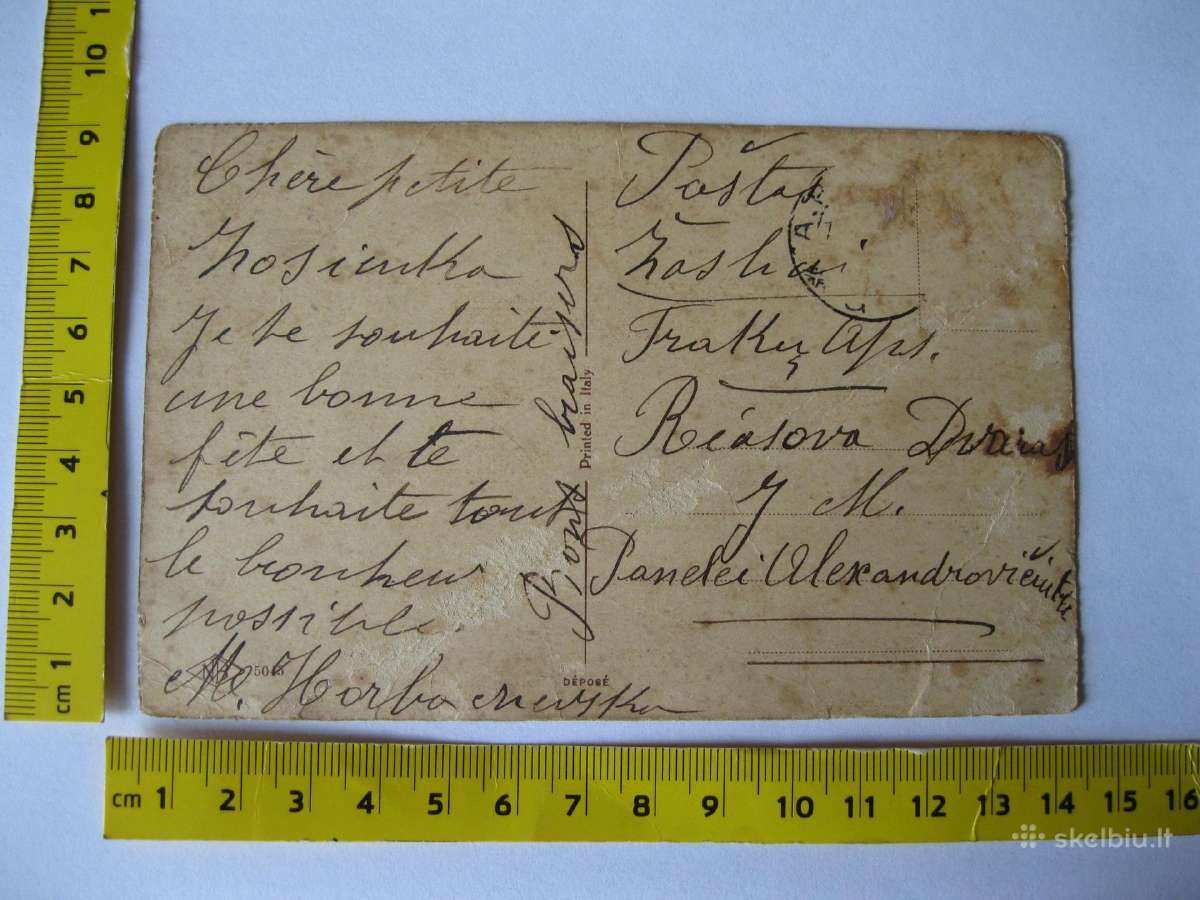 Chère petite
Zosieńka
Je te souhaite
une bonne
fête et te
souhaite tout
le bonheur
possible.
M. Horbaczewska
5045
Bons baisers
Printed in Italy
DÉPOSÉ
Paštas
Žasliai
Trakų Aps.
Dvaras
J. M.
Panelei Alexandrovičiutei
cm 1 2 3 4 5 6 7 8 9 10
cm 1 2 3 4 5 6 7 8 9 10 11 12 13 14 15 16
skelbiu.lt